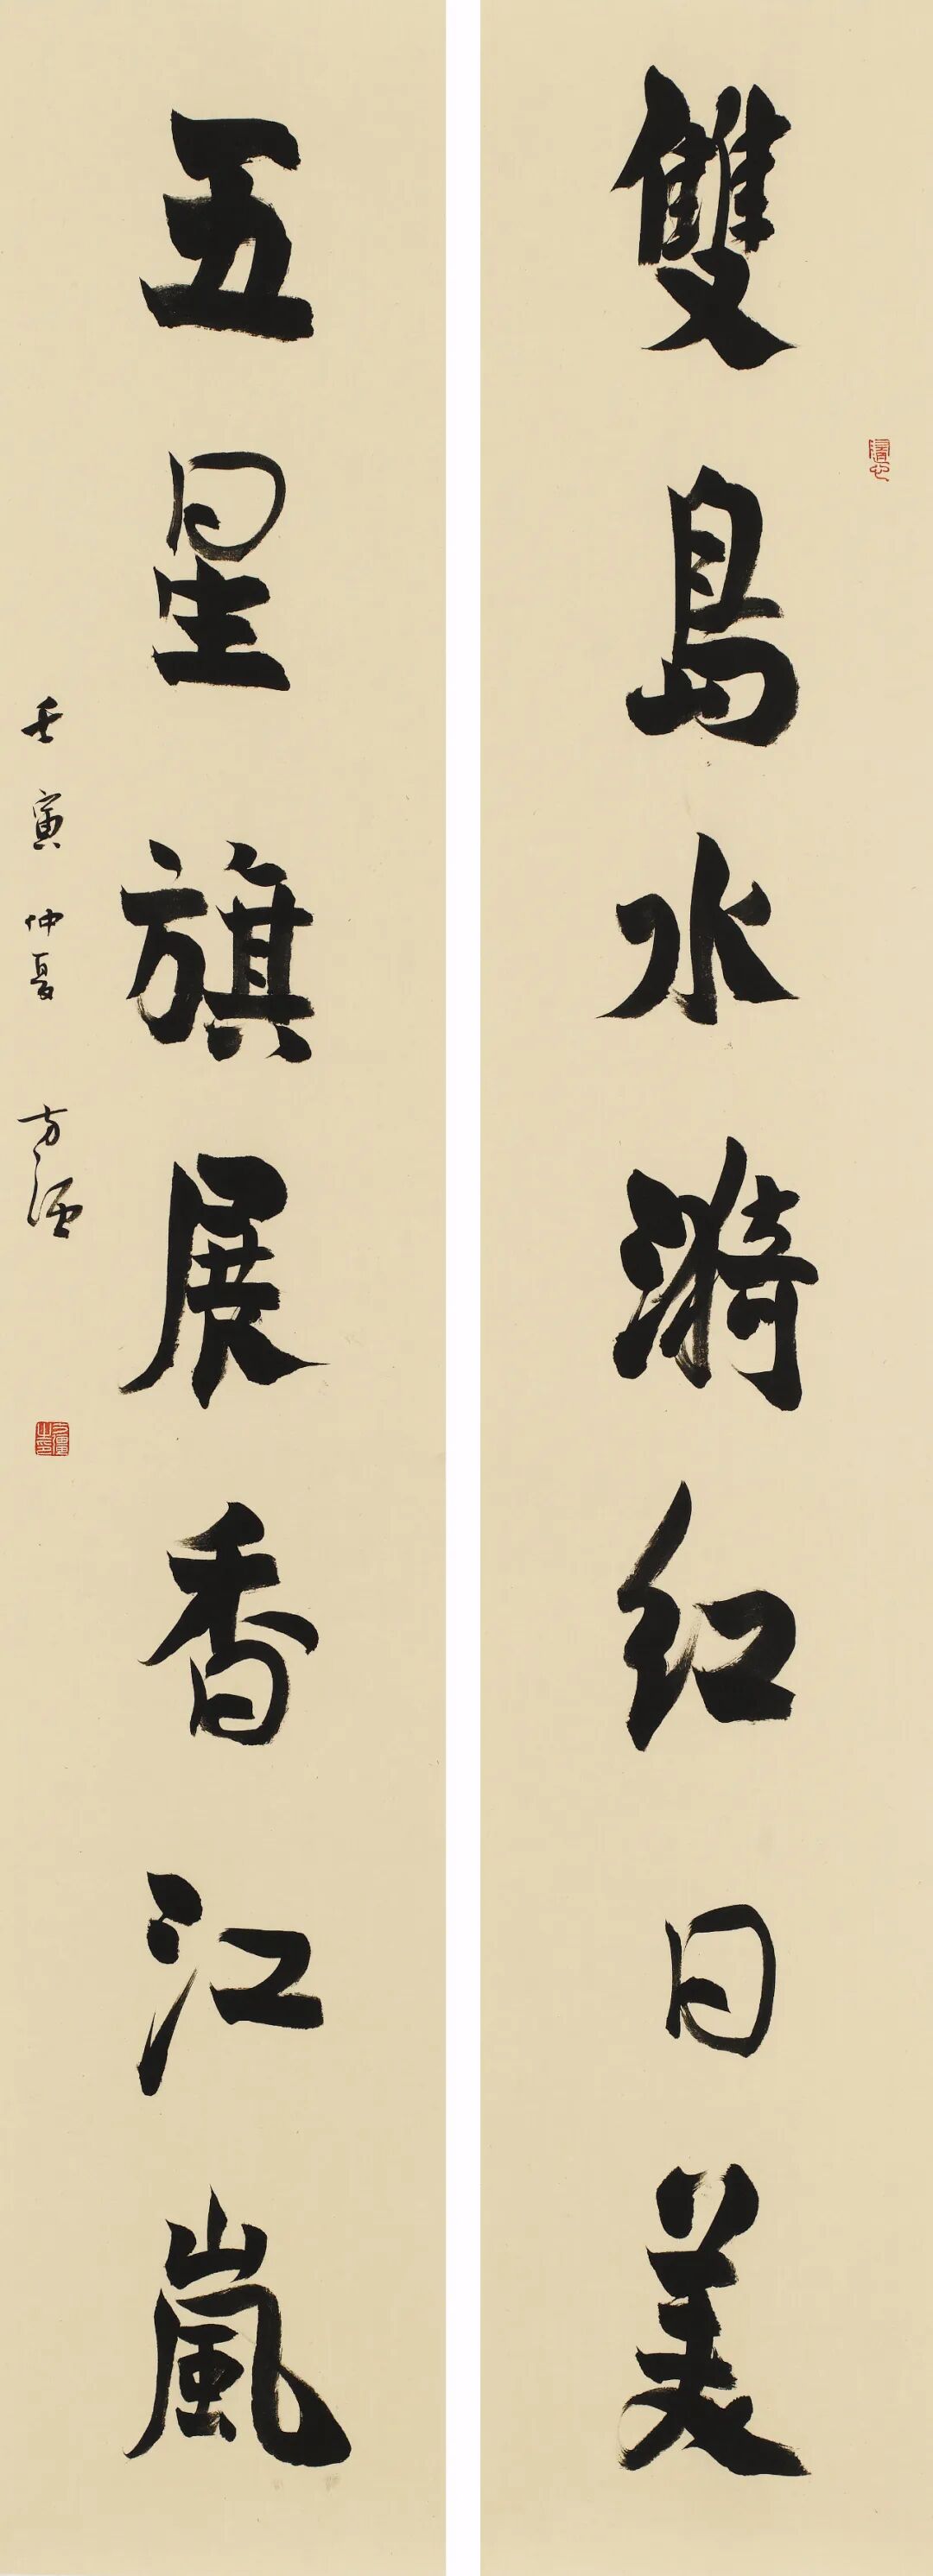 雙島水漪红日美
五星旗展香江嵐
壬寅仲夏 方